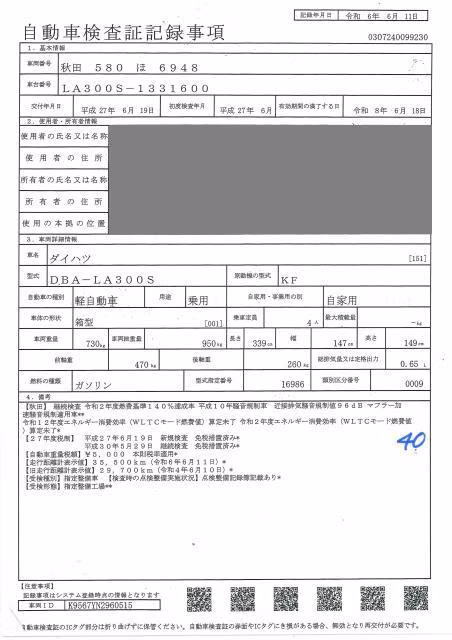 記録年月日 令和 6年 6月 11日
自動車検査証記録事項
0307240099230
1．基本情報
車両番号 秋田 580 ほ 6948
車台番号 LA300S-1331600
交付年月日 平成 27年 6月 19日 初度検査年月 平成 27年 6月 有効期間の満了する日 令和 8年 6月 18日
2．使用者・所有者情報
使用者の氏名又は名称
使用者の住所
所有者の氏名又は名称
所有者の住所
使用の本拠の位置
3．車両詳細情報
車名 ダイハツ [151]
型式 DBA-LA300S 原動機の型式 KF
自動車の種別 軽自動車 用途 乗用 自家用・事業用の別 自家用
車体の形状 箱型 [001] 乗車定員 4人 最大積載量 -kg
車両重量 730kg 車両総重量 950kg 長さ 339cm 幅 147cm 高さ 149cm
前軸重 470kg 後軸重 260kg 総排気量又は定格出力 0.65 L
燃料の種類 ガソリン 型式指定番号 16986 類別区分番号 0009
4．備考
【秋田】 継続検査 令和2年度燃費基準140%達成車 平成10年騒音規制車 近接排気騒音規制値96dB マフラー加
速騒音規制適用車**
令和12年度エネルギー消費効率（WLTCモード燃費値）算定未了 令和2年度エネルギー消費効率（WLTCモード燃費値
）算定未了*
【27年度税制】 平成27年6月19日 新規検査 免税措置済み*
平成30年5月29日 継続検査 免税措置済み*
【自動車重量税額】￥5，000 本則税率適用*
【走行距離計表示値】35，500km（令和6年6月11日）*
【旧走行距離計表示値】29，700km（令和4年6月10日）*
【受検種別】指定整備車 【検査時の点検整備実施状況】点検整備記録簿記載あり*
【受検形態】指定整備工場**
40
【注意事項】
記載事項はシステム登録時点の情報となります
車両ID K9567YN2960515
自動車検査証のICタグ部分は折り曲げずに保管ください。自動車検査証の券面やICタグにき損がある場合、無効となり再交付が必要です。